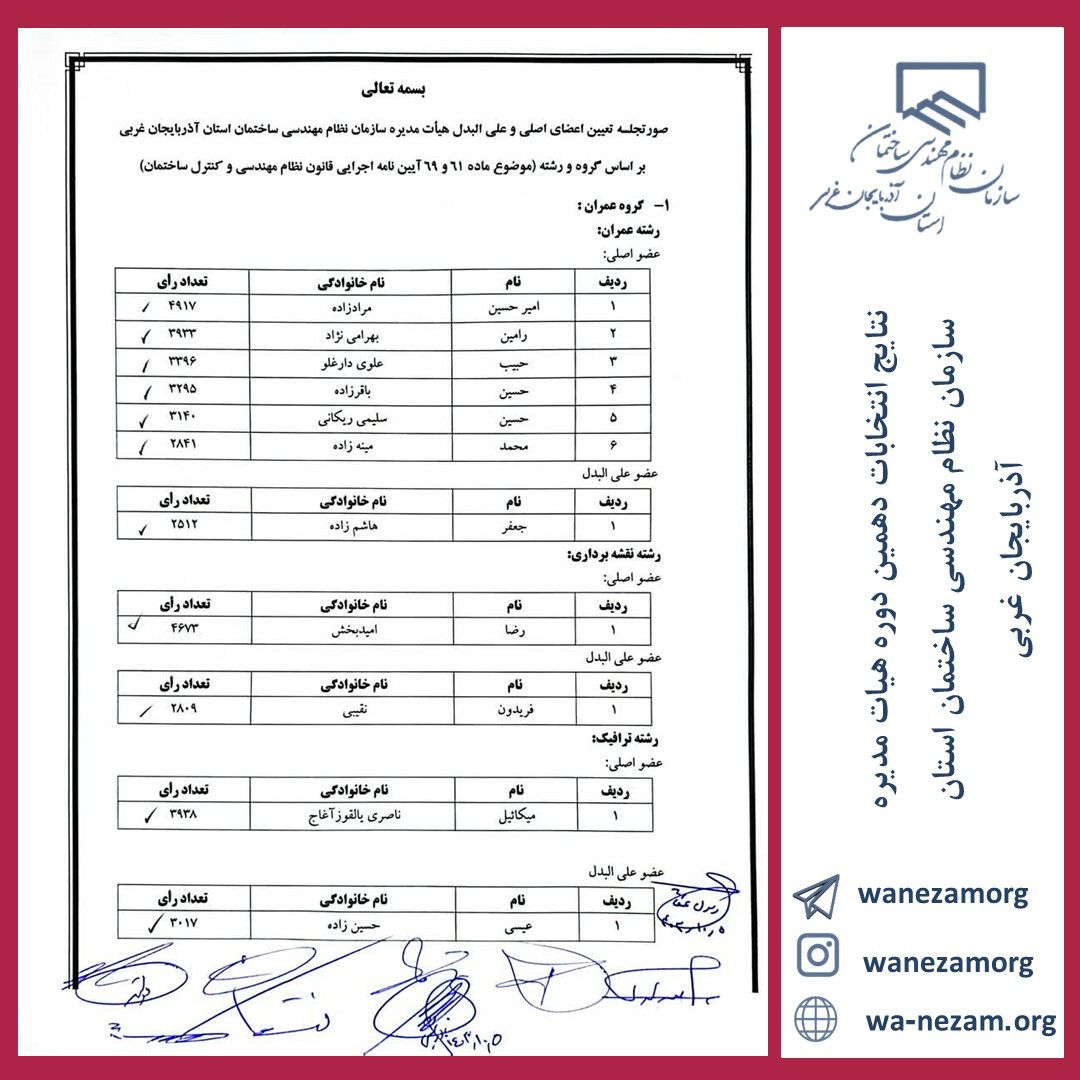 بسمه تعالی
صورتجلسه تعیین اعضای اصلی و علی البدل هیأت مدیره سازمان نظام مهندسی ساختمان استان آذربایجان غربی
بر اساس گروه و رشته (موضوع ماده ۶۱ و ۶۹ آیین نامه اجرایی قانون نظام مهندسی و کنترل ساختمان)
۱- گروه عمران :
رشته عمران:
عضو اصلی:
ردیف نام نام خانوادگی تعداد رأی
۱ امیر حسین مرادزاده ۴۹۱۷
۲ رامین بهرامی نژاد ۳۹۳۳
۳ حبیب علوی دارغلو ۳۳۹۶
۴ حسین باقرزاده ۳۲۹۵
۵ حسین سلیمی ریکانی ۳۱۴۰
۶ محمد مینه زاده ۲۸۴۱
عضو علی البدل
ردیف نام نام خانوادگی تعداد رأی
۱ جعفر هاشم زاده ۲۵۱۲
رشته نقشه برداری:
عضو اصلی:
ردیف نام نام خانوادگی تعداد رأی
۱ رضا امیدبخش ۴۶۷۳
عضو علی البدل
ردیف نام نام خانوادگی تعداد رأی
۱ فریدون نقیبی ۲۸۰۹
رشته ترافیک:
عضو اصلی:
ردیف نام نام خانوادگی تعداد رأی
۱ میکائیل ناصری یالقوزآغاج ۳۹۳۸
عضو علی البدل
ردیف نام نام خانوادگی تعداد رأی
۱ عیسی حسین زاده ۳۰۱۷
سازمان نظام مهندسی ساختمان
استان آذربایجان غربی
نتایج انتخابات دهمین دوره هیات مدیره
سازمان نظام مهندسی ساختمان استان
آذربایجان غربی
wanezamorg
wanezamorg
wa-nezam.org